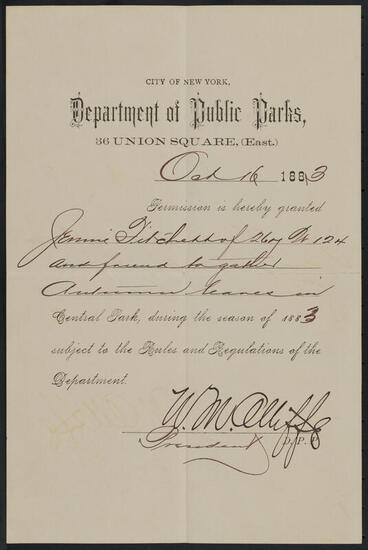 CITY OF NEW YORK,
Department of Public Parks,
36 UNION SQUARE, (East.)
Oct 16 1883
Permission is hereby granted
Jennie Pitchett of 267 W 124
and friend to gather
Autumn leaves in
Central Park, during the season of 1883
subject to the Rules and Regulations of the
Department.
W. M. Olliffe
President D. P. P.